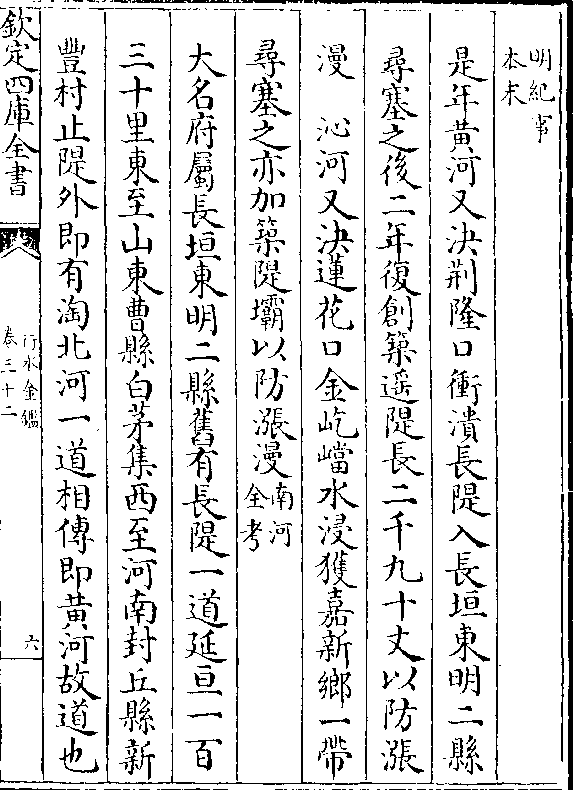 明紀事
本末
是年黄河又決荆隆口衝潰長隄入長垣東明二縣
尋塞之後二年復創築遥隄長二千九十丈以防漲
漫　沁河又決蓮花口金屹嵣水浸獲嘉新鄉一帶
尋塞之亦加築隄壩以防漲漫南河
全考
大名府屬長垣東明二縣舊有長隄一道延亘一百
三十里東至山東曹縣白茅集西至河南封丘縣新
豐村止隄外即有淘北河一道相傳即黄河故道也
欽定四庫全書
行水金鑑
卷三十二
六